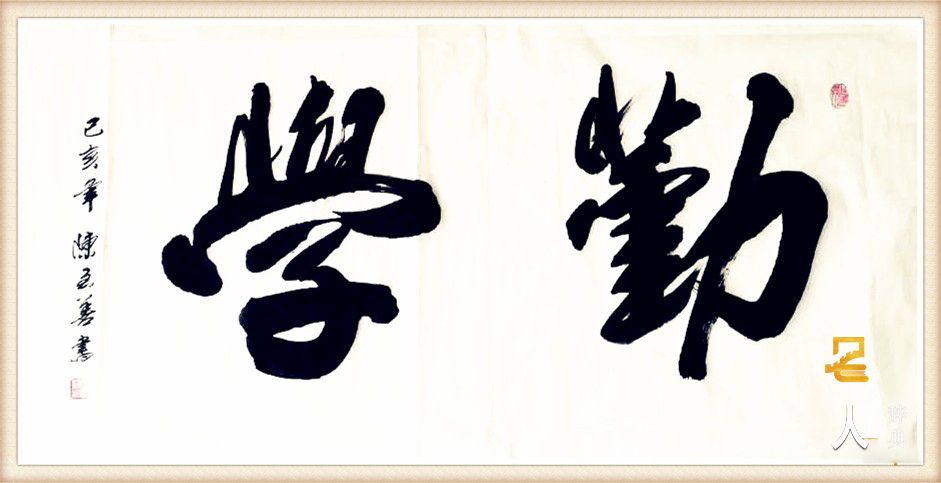 勤學
己亥年 陳至善書
人
辞典